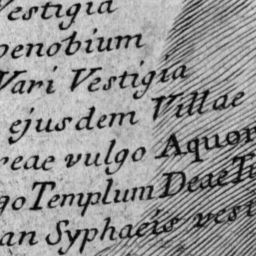 Vestigia
oenobium
Vari Vestigia
ejusdem Villae
reae vulgo Aquor
go Templum Deae Tu
an Syphaeis vesti